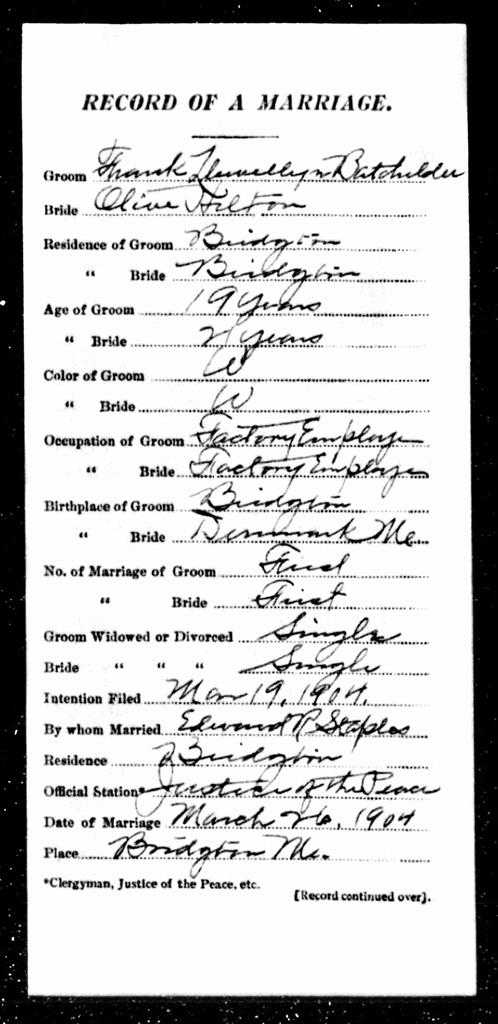 RECORD OF A MARRIAGE.
Groom Frank Llewellyn Batchelder
Bride Olive Hilton
Residence of Groom Bridgton
" Bride Bridgton
Age of Groom 19 years
" Bride 21 years
Color of Groom W
" Bride W
Occupation of Groom Factory Employe
" Bride Factory Employe
Birthplace of Groom Bridgton
" Bride Denmark Me.
No. of Marriage of Groom First
" Bride First
Groom Widowed or Divorced Single
Bride " " " Single
Intention Filed Mar 19, 1904.
By whom Married Edward P. Staples
Residence Bridgton
Official Station* Justice of the Peace
Date of Marriage March 26, 1904
Place Bridgton Me.
*Clergyman, Justice of the Peace, etc.
[Record continued over].